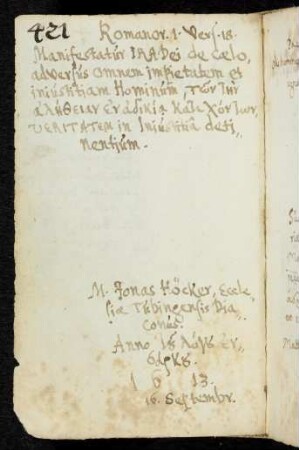 421
Romanor. 1. Vers. 18.
Manifestatúr IRA Dei de cælo,
adversús omnem impietatem et
iniústitiam Hominúm, τῶν τὴν
ἀλήθειαν ἐν ἀδικίᾳ κατεχόντων,
VERITATEM in Iniústitiâ deti
nentiúm.
M. Jonas Höcker, Eccle,
siæ Túbingensis Dia,
conús.
Anno
1 6 13.
16. Septembr.